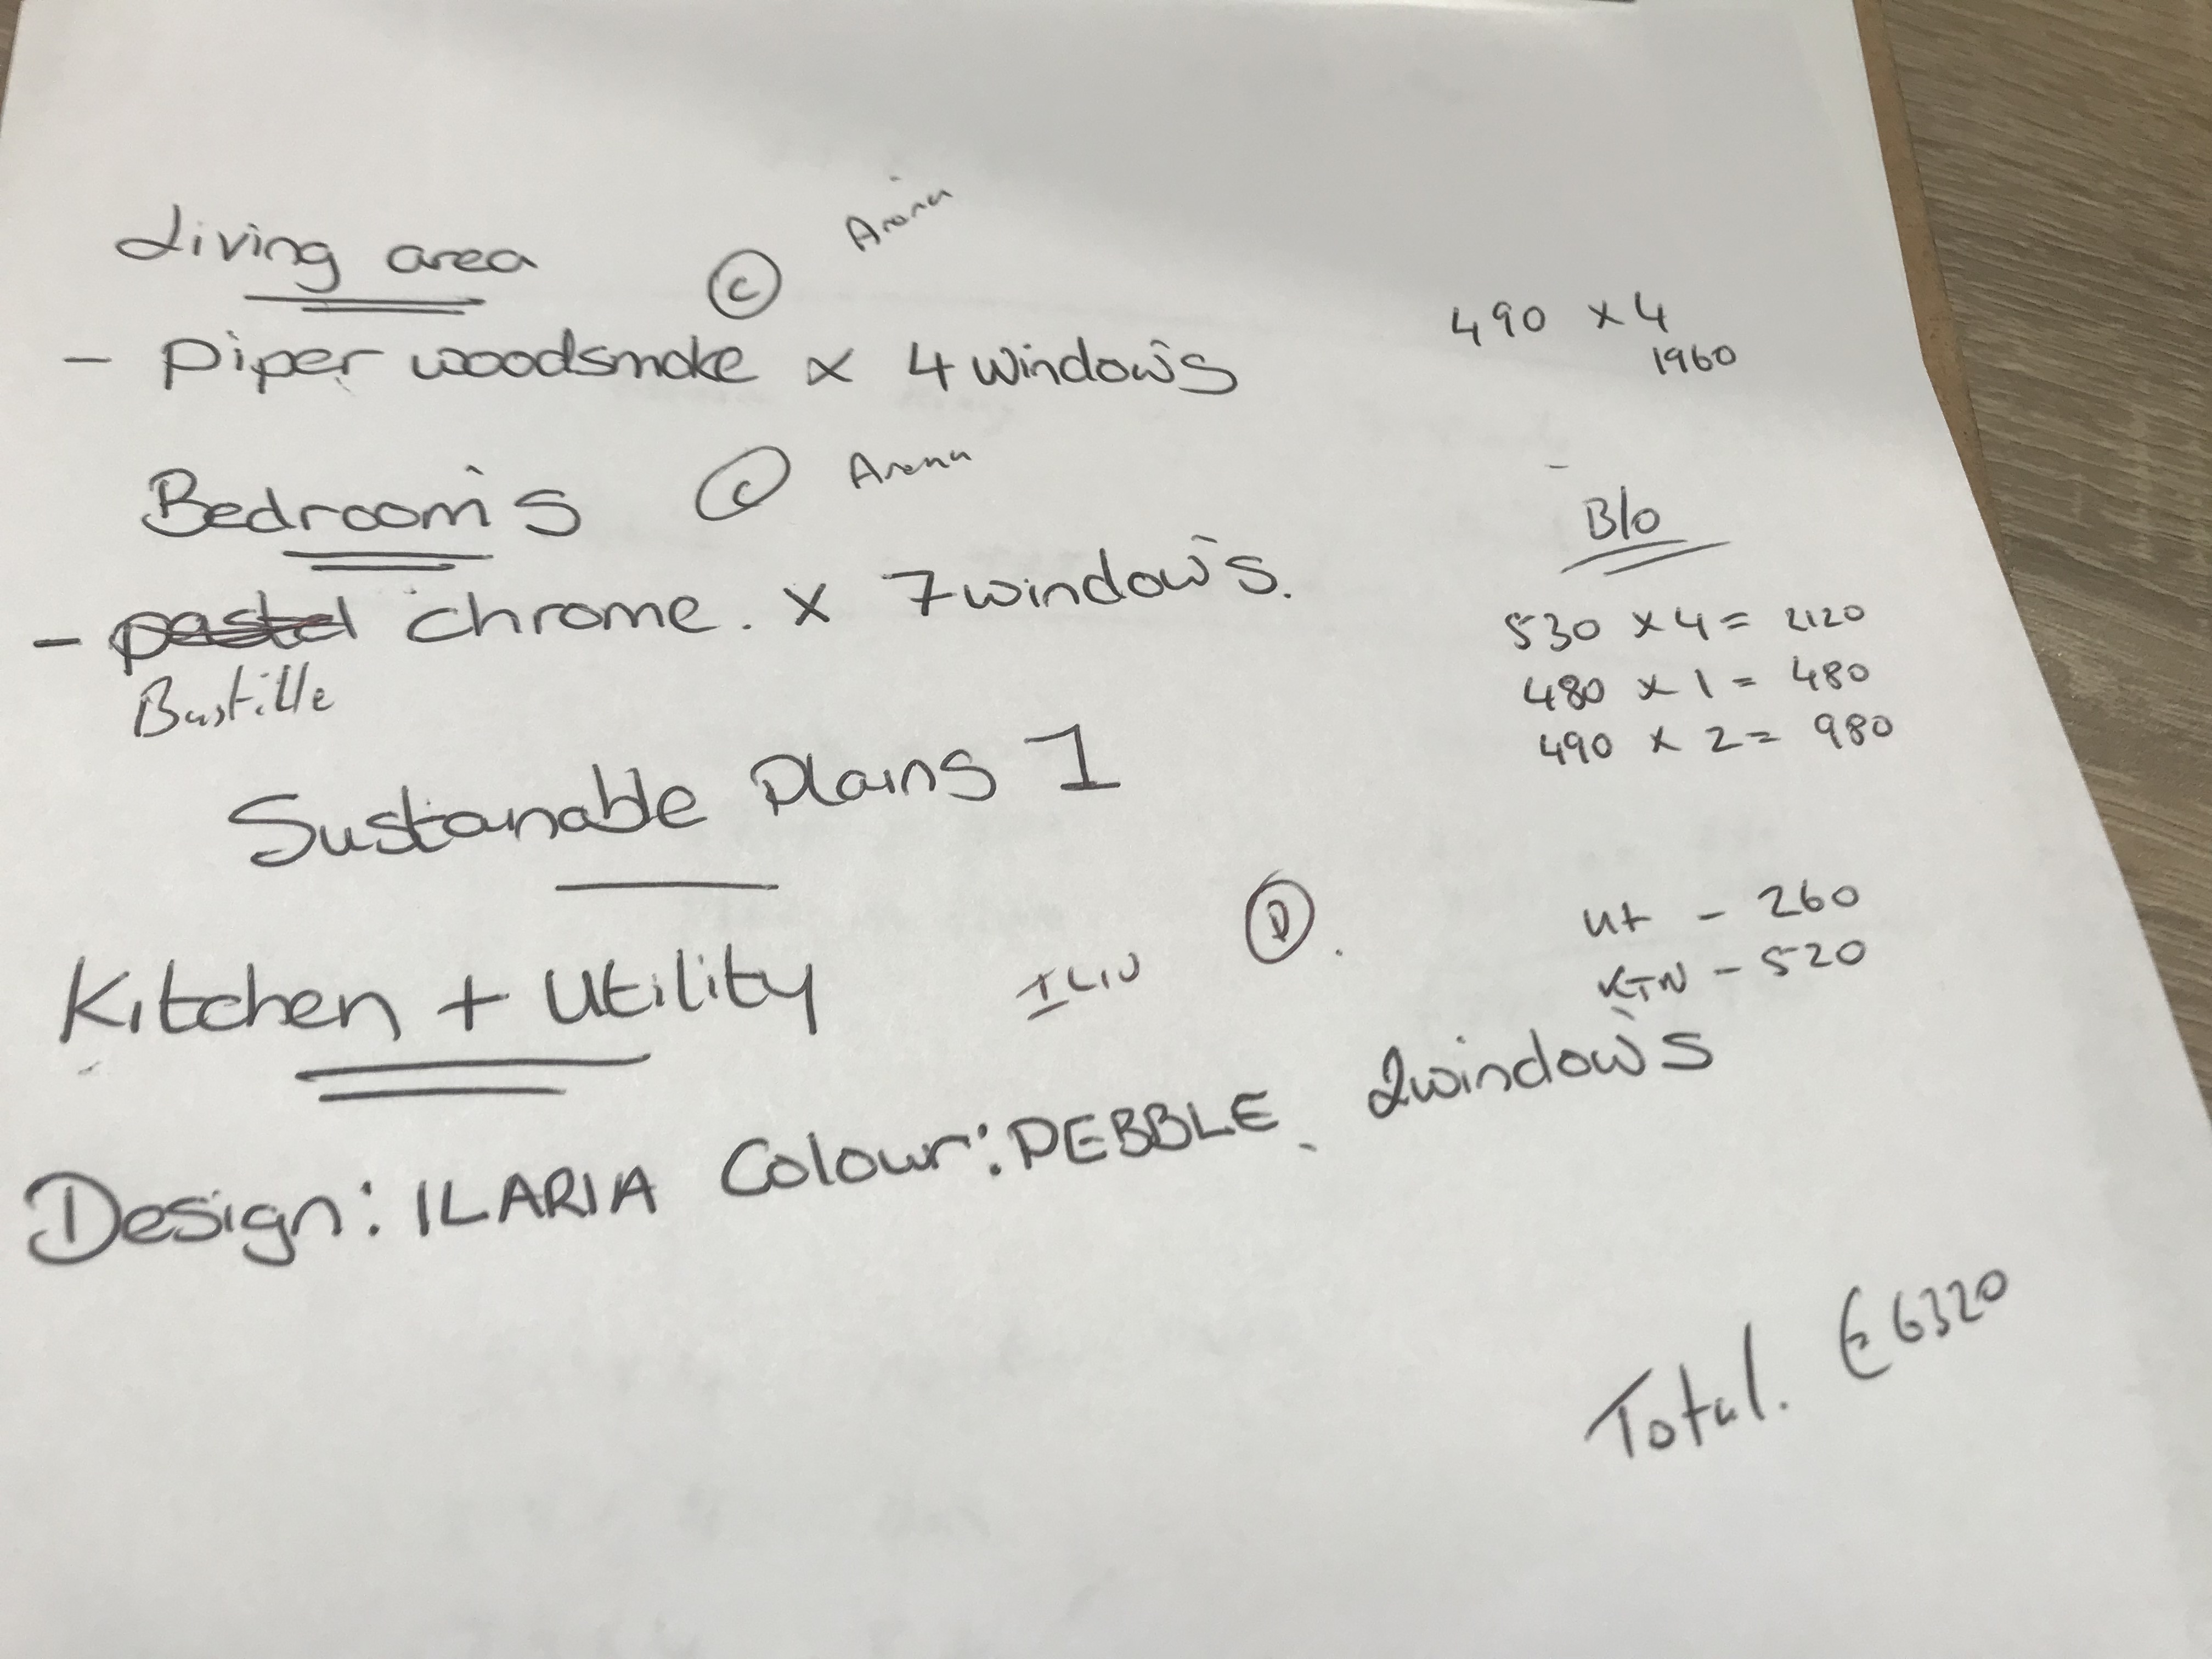 Living area C Arena
490 x 4
1960
- Piper woodsmoke x 4 window's
Bedroom's C Arena
B/o
- pastel chrome. x 7 window's.
Bastille
530 x 4 = 2120
480 x 1 = 480
490 x 2 = 980
Sustanable Plains 1
Kitchen + Utility ILIV D.
Ut - 260
KTN - 520
Design: ILARIA Colour: PEBBLE. 2 window's
Total. €6320